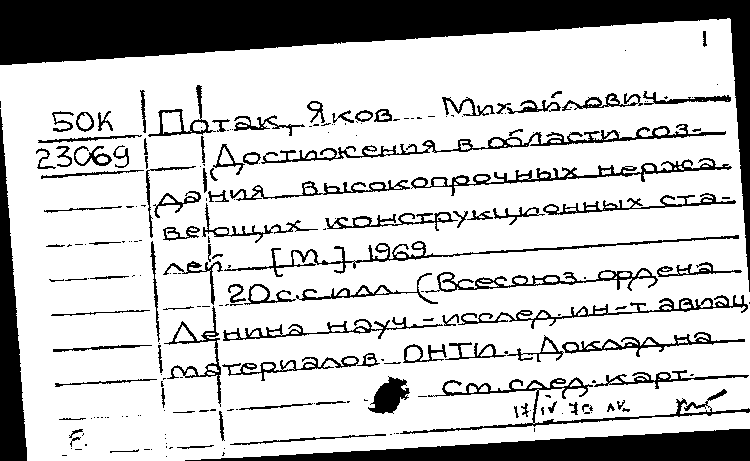 1
БОК Потак, Яков Михайлович.
23069 Достижения в области соз-
дания высокопрочных нержа-
веющих конструкционных ста-
лей. [М.], 1969
20 с. с илл. (Всесоюз. ордена
Ленина науч.-исслед. ин-т авиац.
материалов. ОНТИ. Доклад на
см. след. карт.
17/IV 70